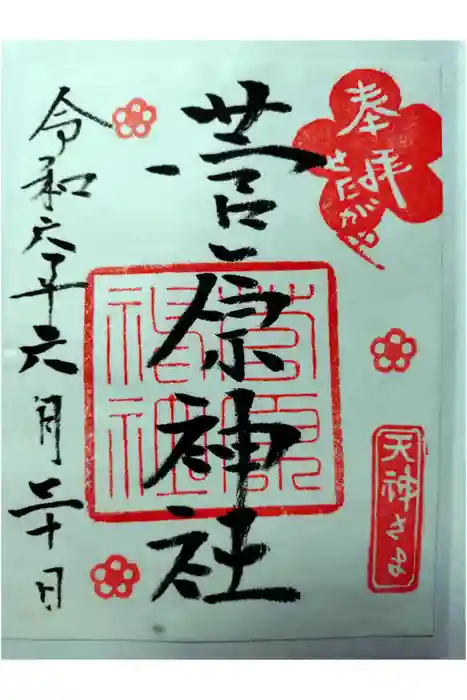 奉拝
せたがや
天神さま
菅原神社
菅原
神社
令和六年六月二十日